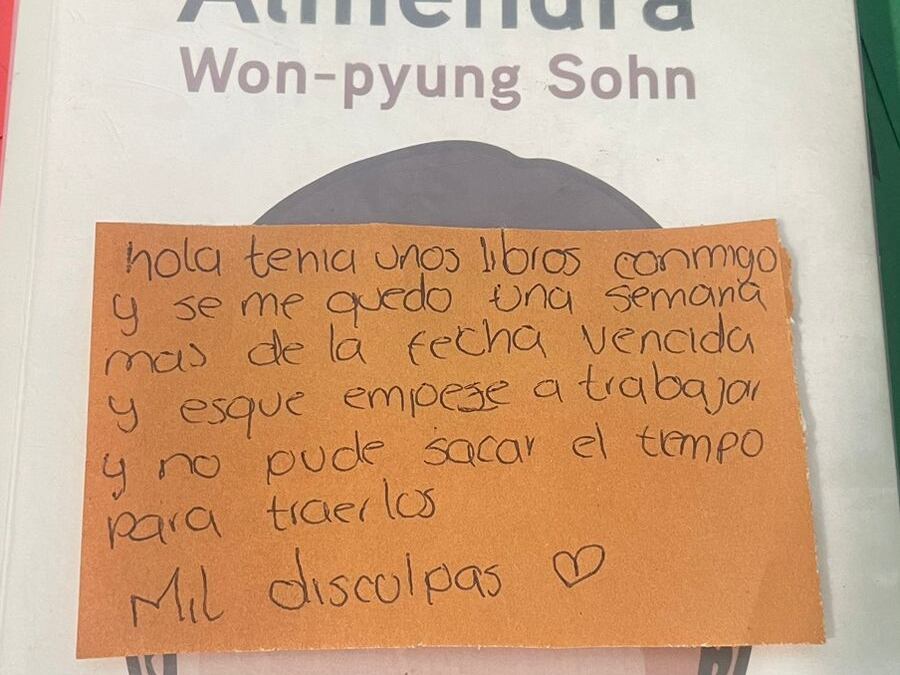 Almendra
Won-pyung Sohn
hola tenia unos libros conmigo
y se me quedo una semana
mas de la fecha vencida
y esque empese a trabajar
y no pude sacar el tempo
para traerlos
Mil disculpas ♡